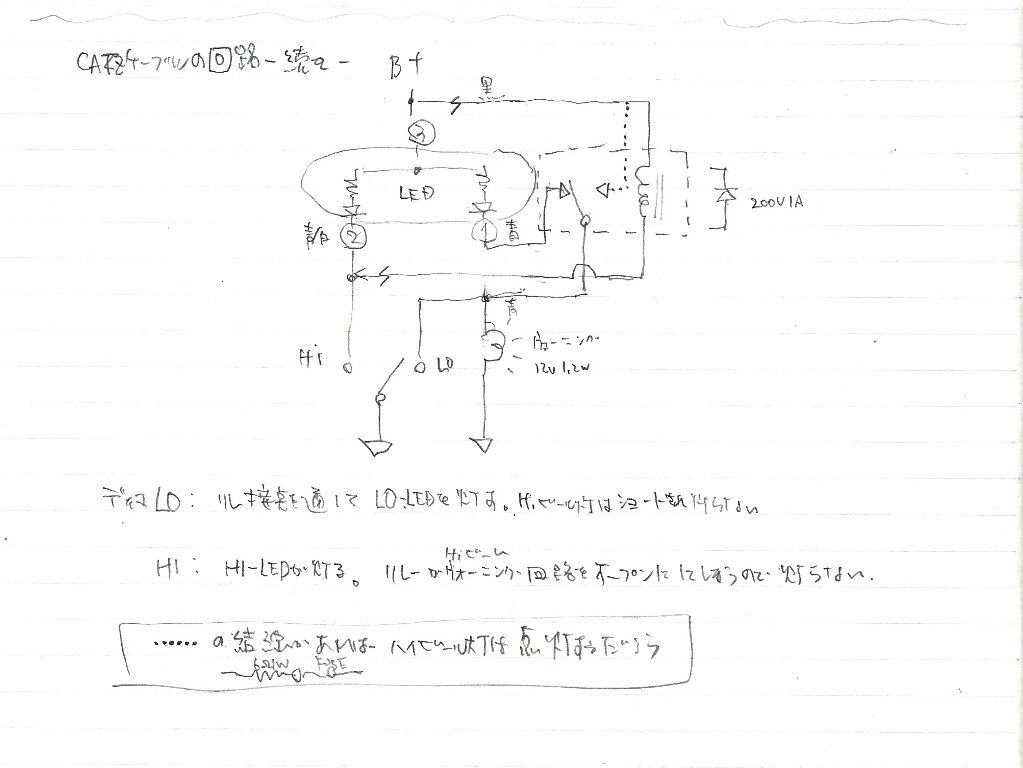 CATZケーブルの回路-続き-
B+
黒
3
LED
青/白
2
1
青
200V1A
青
Hi
LO
ウォーニング
12V 1.2W
ディマLO: リレー接点を通して LO-LEDを灯す。Hiビーム灯はショートされ灯らない
Hiビーム
HI: HI-LEDが灯る。リレーがウォーニング回路をオープンにしてしまうので灯らない.
...... の結線があれば ハイビーム灯は点灯するだろう
FUSE